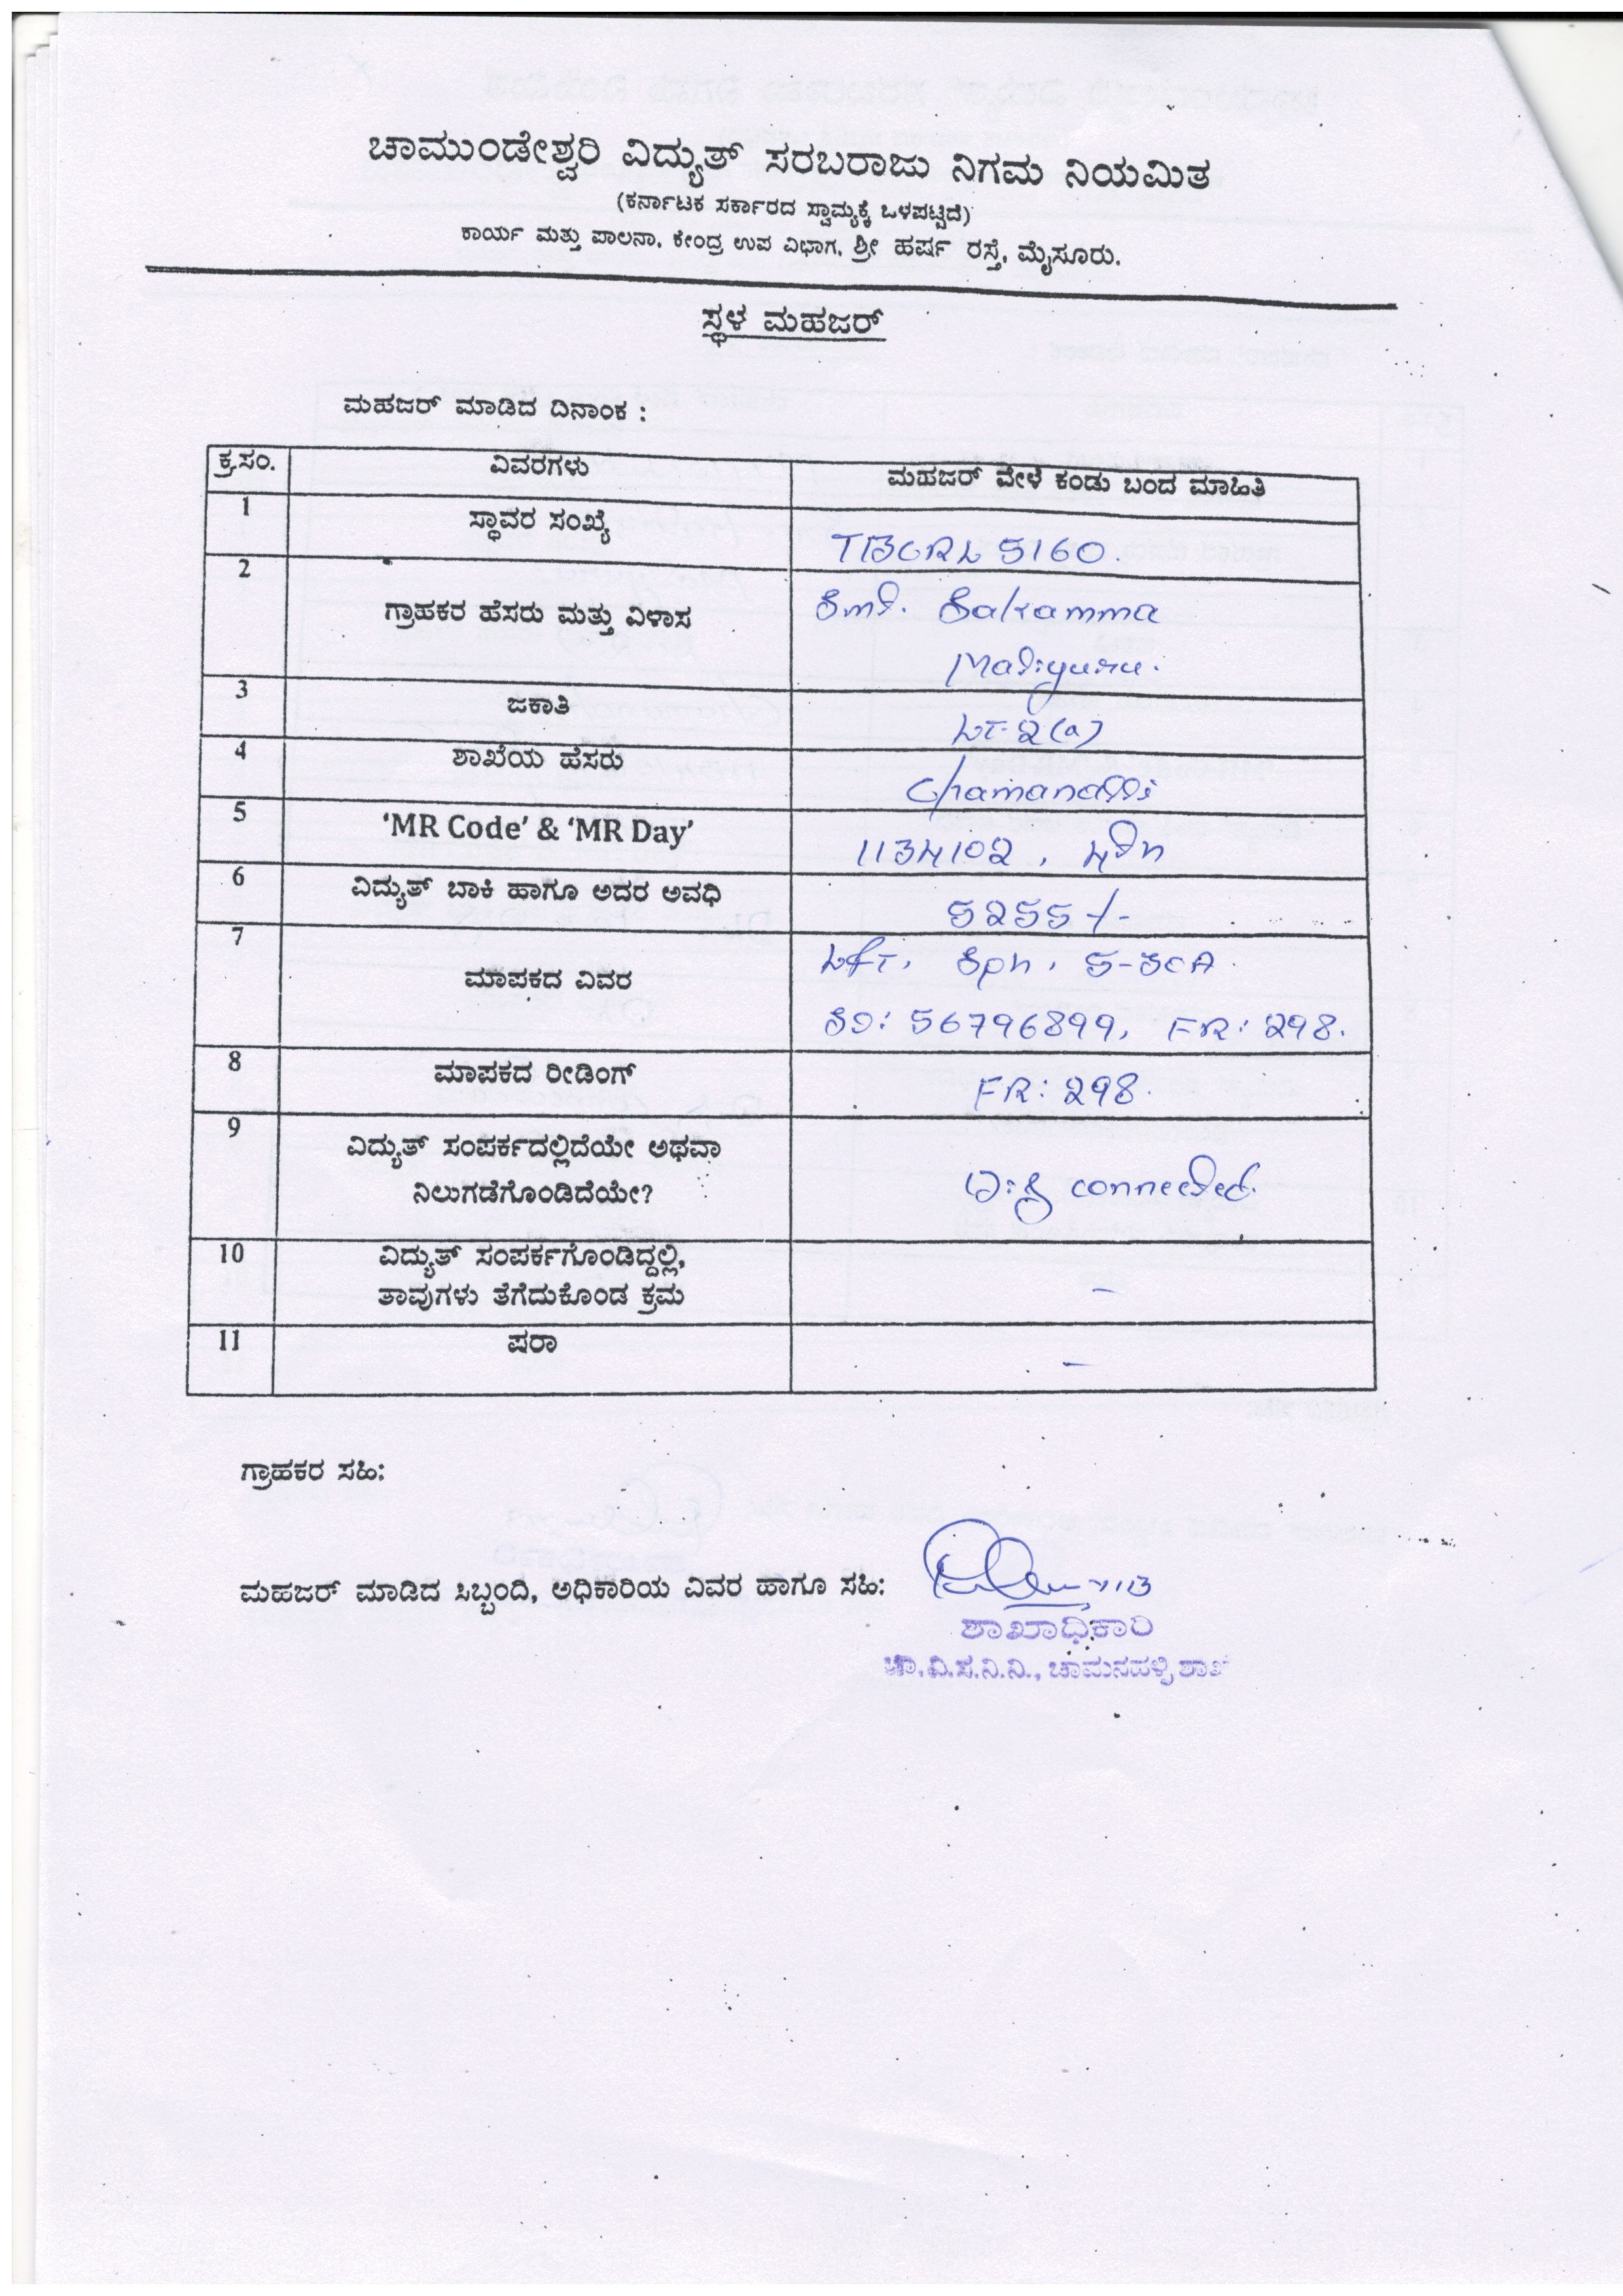 ಚಾಮುಂಡೇಶ್ವರಿ ವಿದ್ಯುತ್ ಸರಬರಾಜು ನಿಗಮ ನಿಯಮಿತ
(ಕರ್ನಾಟಕ ಸರ್ಕಾರದ ಸ್ವಾಮ್ಯಕ್ಕೆ ಒಳಪಟ್ಟಿದೆ)
ಕಾರ್ಯ ಮತ್ತು ಪಾಲನಾ, ಕೇಂದ್ರ ಉಪ ವಿಭಾಗ, ಶ್ರೀ ಹರ್ಷ ರಸ್ತೆ, ಮೈಸೂರು.
ಸ್ಥಳ ಮಹಜರ್
ಮಹಜರ್ ಮಾಡಿದ ದಿನಾಂಕ :
ಕ್ರ.ಸಂ. ವಿವರಗಳು ಮಹಜರ್ ವೇಳೆ ಕಂಡು ಬಂದ ಮಾಹಿತಿ
1 ಸ್ಥಾವರ ಸಂಖ್ಯೆ 5160.
2 ಗ್ರಾಹಕರ ಹೆಸರು ಮತ್ತು ವಿಳಾಸ Smt. Sakamma
3 ಜಕಾತಿ LT-2(a)
4 ಶಾಖೆಯ ಹೆಸರು
5 'MR Code' & 'MR Day' 1134102, 4th
6 ವಿದ್ಯುತ್ ಬಾಕಿ ಹಾಗೂ ಅದರ ಅವಧಿ 5255/-
7 ಮಾಪಕದ ವಿವರ L&T, 5-30A.
56796899, FR: 298.
8 ಮಾಪಕದ ರೀಡಿಂಗ್ FR: 298.
9 ವಿದ್ಯುತ್ ಸಂಪರ್ಕದಲ್ಲಿದೆಯೇ ಅಥವಾ
ನಿಲುಗಡೆಗೊಂಡಿದೆಯೇ? Dis connected.
10 ವಿದ್ಯುತ್ ಸಂಪರ್ಕಗೊಂಡಿದ್ದಲ್ಲಿ,
ತಾವುಗಳು ತೆಗೆದುಕೊಂಡ ಕ್ರಮ -
11 ಷರಾ -
ಗ್ರಾಹಕರ ಸಹಿ:
ಮಹಜರ್ ಮಾಡಿದ ಸಿಬ್ಬಂದಿ, ಅಧಿಕಾರಿಯ ವಿವರ ಹಾಗೂ ಸಹಿ:
ಶಾಖಾಧಿಕಾರಿ
ಚಾ.ವಿ.ಸ.ನಿ.ನಿ., ಚಾಮನಹಳ್ಳಿ ಶಾಖೆ